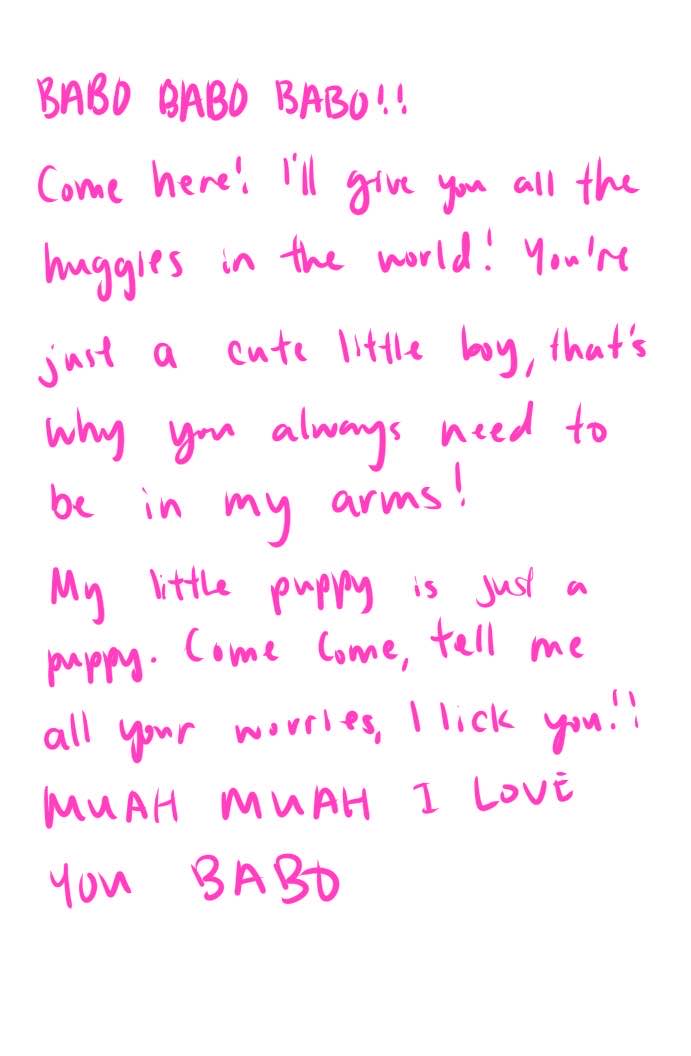 BABO BABO BABO!!
Come here! I'll give you all the
huggies in the world! You're
just a cute little boy, that's
why you always need to
be in my arms!
My little puppy is just a
puppy. Come Come, tell me
all your worries, I lick you!!
MUAH MUAH I LOVE
YOU BABO